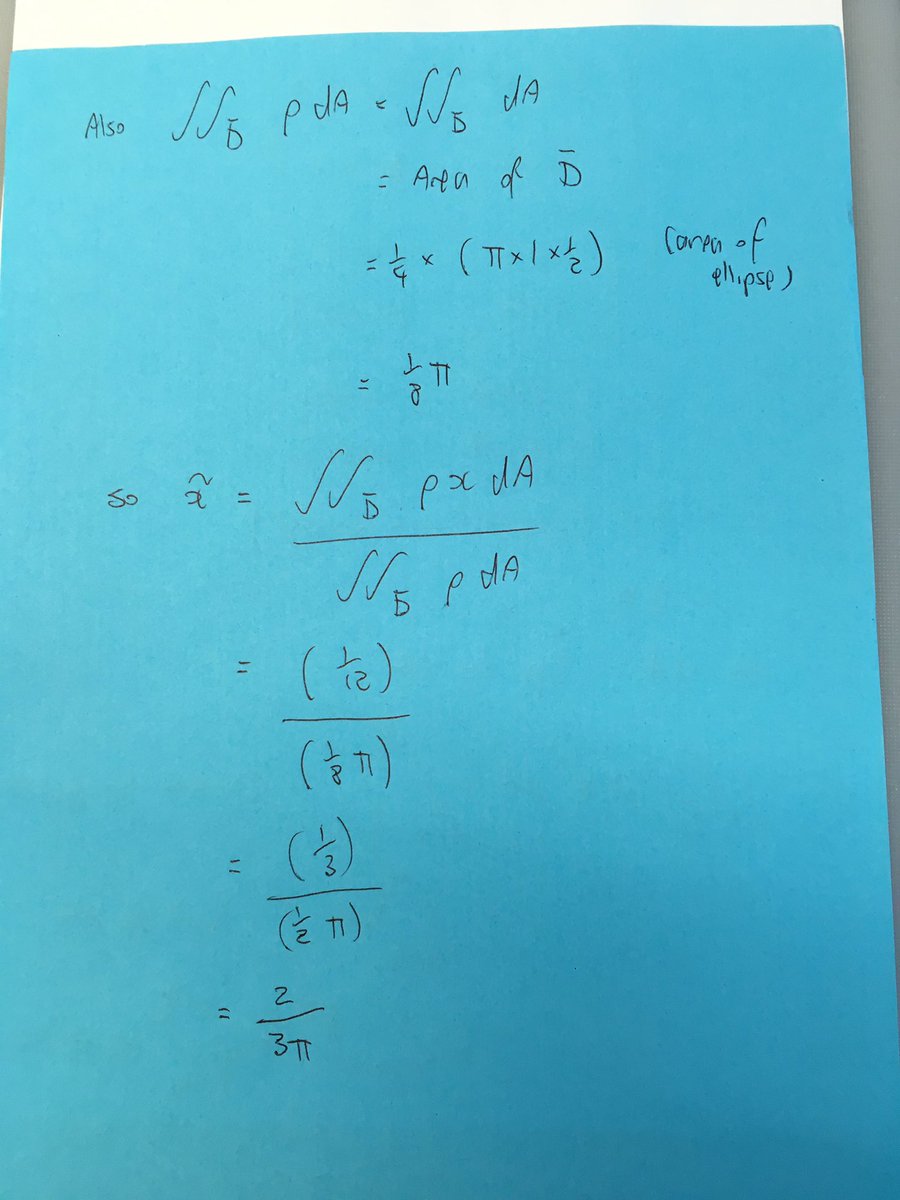 Also ∬_D̄ ρ dA = ∬_D̄ dA
= Area of D̄
= 1/4 × (π×1×1/2) (area of ellipse)
= 1/8 π
so x̃ = ∬_D̄ ρ x dA / ∬_D̄ ρ dA
= (1/12) / (1/8 π)
= (1/3) / (1/2 π)
= 2 / 3π